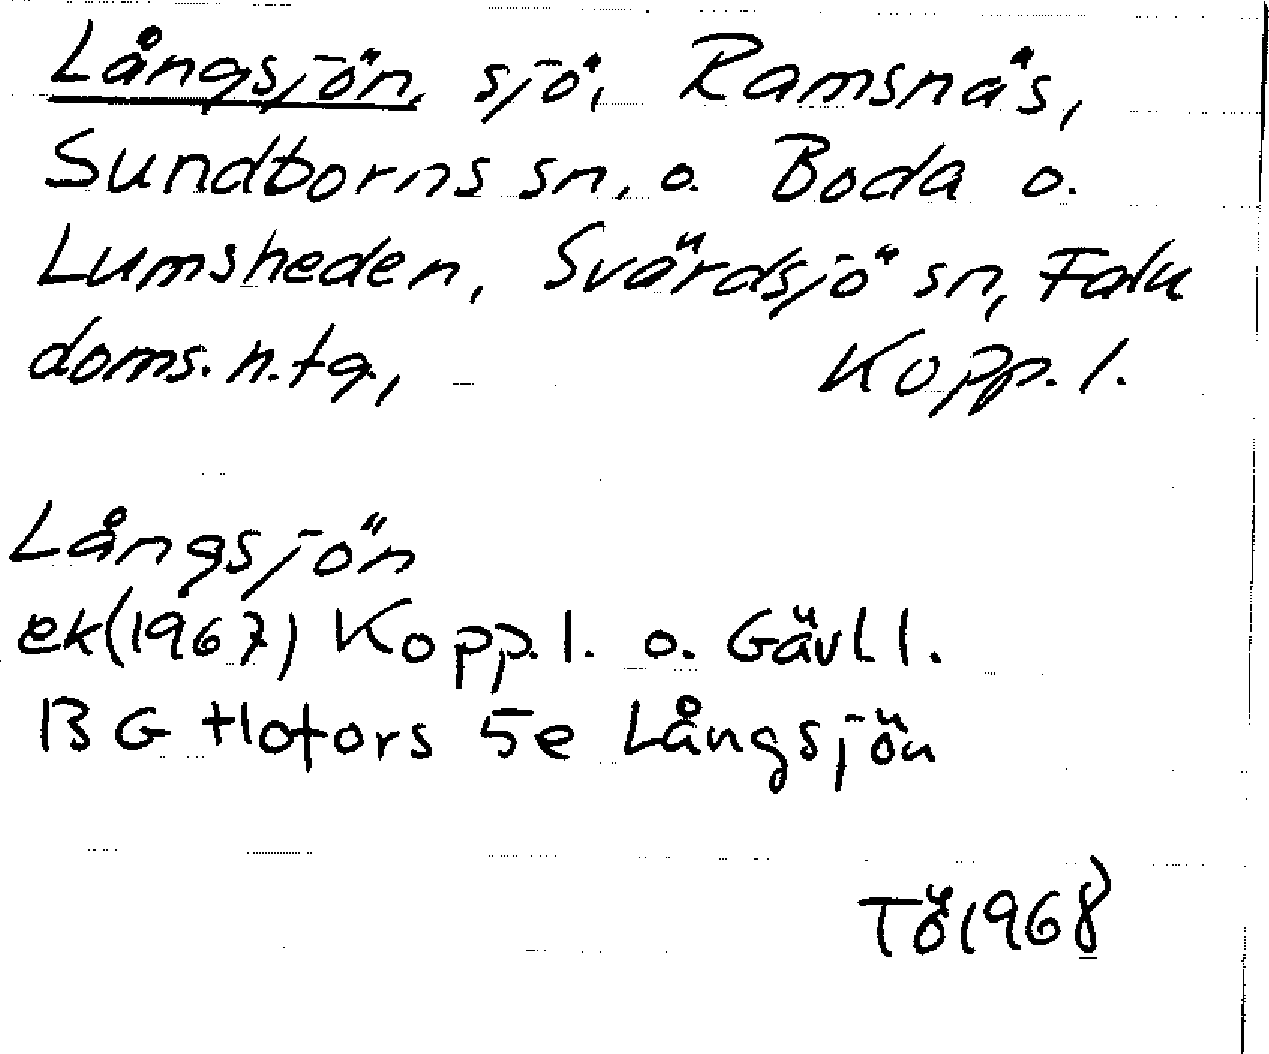 Långsjön, sjö, Ramsnäs,
Sundborns sn. o. Boda o.
Lumsheden, Svärdsjö sn, Falu
doms. n. tg., Kopp. l.
Långsjön
ek(1967) Kopp. l. o. Gävl l.
BG Hofors 5e Långsjön
TÖ 1968